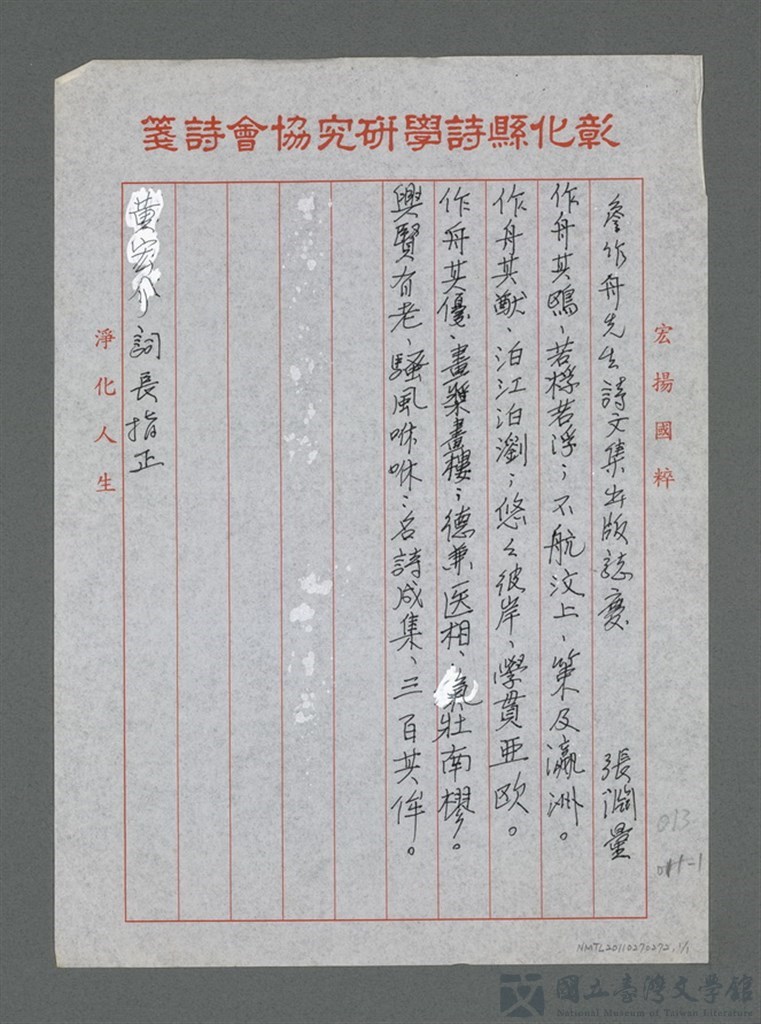 彰化縣詩學研究協會詩箋
宏揚國粹
詹作舟先生詩文集出版誌慶 張淵量
作舟其鷗、若樑若浮；不航汶上、策及瀛洲。
作舟其猷、泊江泊瀏；悠々彼岸、學貫亞歐。
作舟其優、畫槳畫樓；德兼医相、氣壯南樛。
興賢有老、騷風咻咻；名詩成集、三百其侔。
黃宏介詞長指正
淨化人生
013
011-1
NMTL20110270272, 1/1
國立臺灣文學館
National Museum of Taiwan Literature